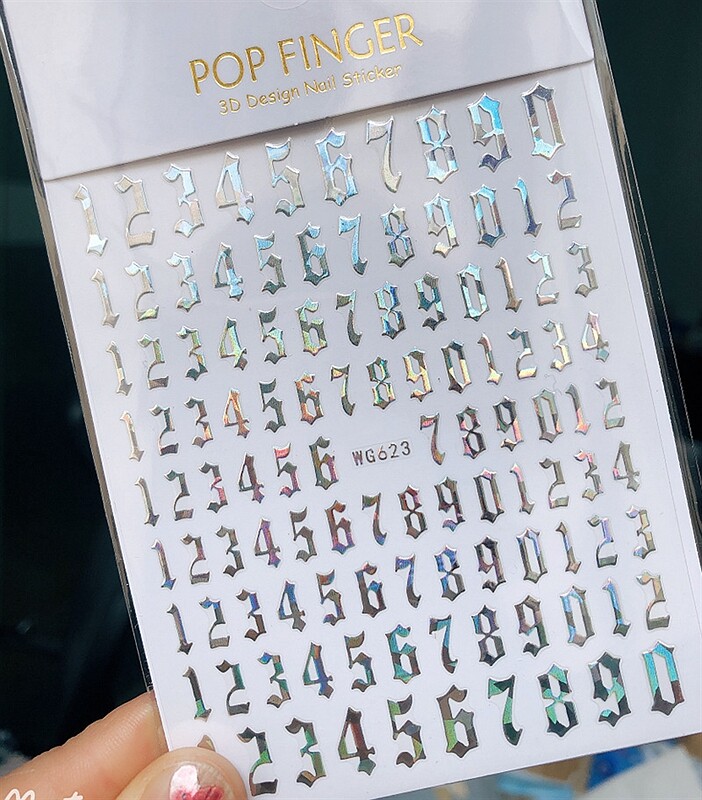 POP FINGER
3D Design Nail Sticker
1 2 3 4 5 6 7 8 9 0
1 2 3 4 5 6 7 8 9 0 1 2
1 2 3 4 5 6 7 8 9 0 1 2 3
1 2 3 4 5 6 7 8 9 0 1 2 3 4
1 2 3 4 5 6 WG623 7 8 9 0 1 2
1 2 3 4 5 6 7 8 9 0 1 2 3 4
1 2 3 4 5 6 7 8 9 0 1 2 3
1 2 3 4 5 6 7 8 9 0 1 2
2 3 4 5 6 7 8 9 0